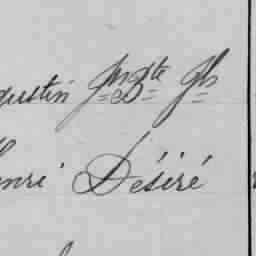 gustin Jn Bte Jh
enri Désiré